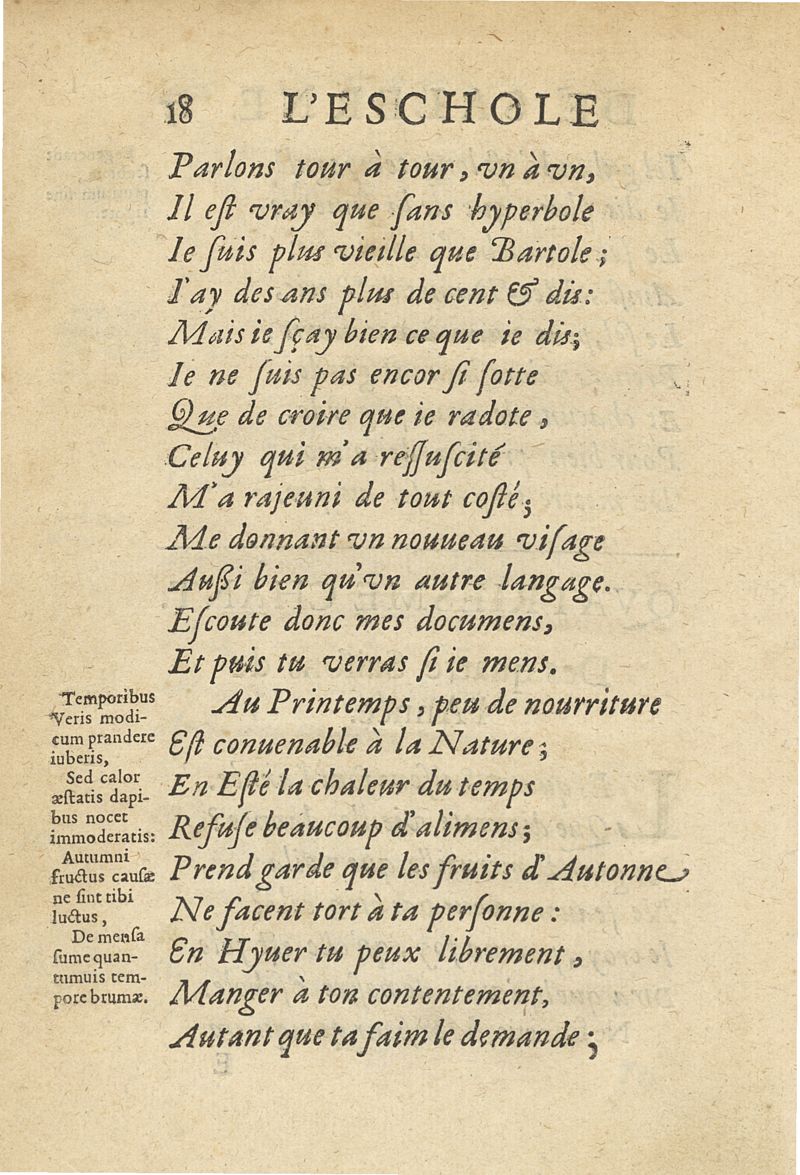 18 L'ESCHOLE
Parlons tour à tour, vn à vn,
Il eſt vray que ſans hyperbole
Ie ſuis plus vieille que Bartole;
I'ay des ans plus de cent & dis:
Mais ie ſçay bien ce que ie dis;
Ie ne ſuis pas encor ſi ſotte
Que de croire que ie radote,
Celuy qui m'a reſſuſcité
M'a rajeuni de tout coſté;
Me donnant vn nouueau viſage
Auſſi bien qu'vn autre langage.
Eſcoute donc mes documens,
Et puis tu verras ſi ie mens.
Au Printemps, peu de nourriture
Eſt conuenable à la Nature;
En Eſté la chaleur du temps
Refuſe beaucoup d'alimens;
Prend garde que les fruits d'Autonne
Ne facent tort à ta perſonne:
En Hyuer tu peux librement,
Manger à ton contentement,
Autant que ta faim le demande;
Temporibus
Veris modi-
cum prandere
iuberis,
Sed calor
æſtatis dapi-
bus nocet
immoderatis:
Autumni
fructus cauſæ
ne ſint tibi
luctus,
De menſa
ſume quan-
tumuis tem-
pore brumæ.